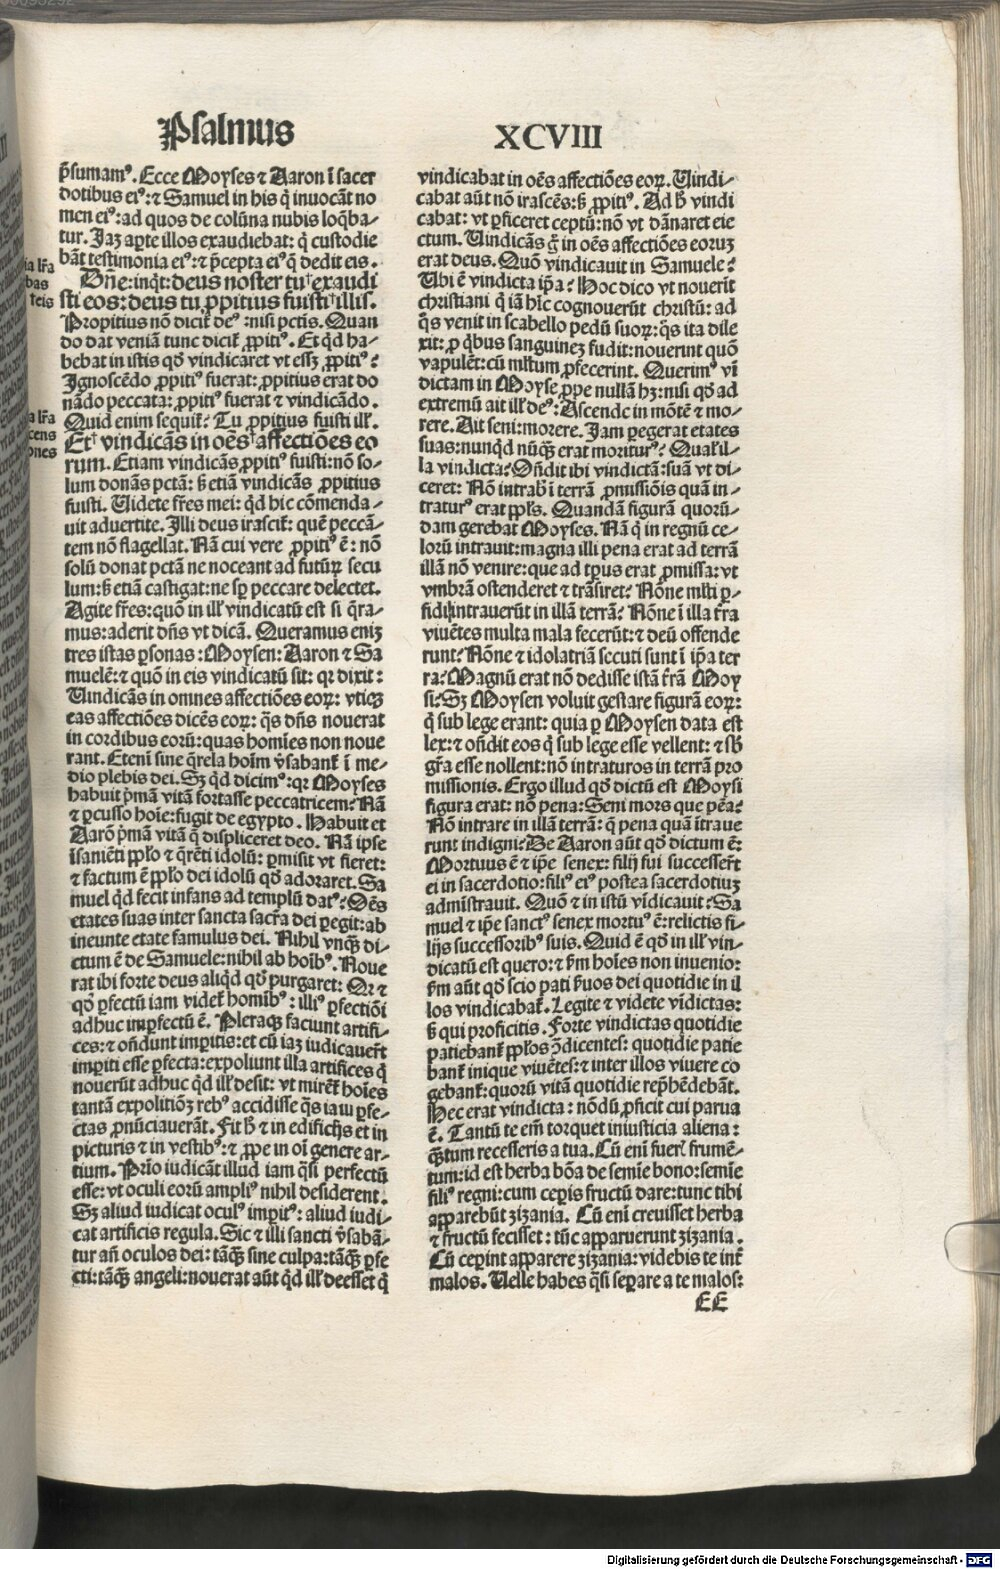 Psalmus XCVIII
p̄sumamꝰ. Ecce Moyses ⁊ Aaron ī sacer
dotibus eiꝰ: ⁊ Samuel in his q̇ inuocāt no
men eiꝰ: ad quos de colūna nubis loq̄ba-
tur. Jaꝫ aꝑte illos exaudiebat: q̇ custodie
bāt testimonia eiꝰ: ⁊ p̄cepta eiꝰ q̄ dedit eis.
Dn̄e: inq̇t: deus noster tu† exaudi
sti eos: deus tu ꝓpitius fuisti† illis.
Propitius nō dicit̄ deꝰ: nisi pctīs. Quan
do dat veniā tunc dicit̄ ꝓpitiꝰ. Et qd̓ ha-
bebat in istis qd̓ vindicaret vt esset ꝓpitiꝰ?
Jgnoscēdo ꝓpitiꝰ fuerat: ꝓpitius erat do
nādo peccata: ꝓpitiꝰ fuerat ⁊ vindicādo.
Quid enim sequit̄? Tu ꝓpitius fuisti ill̓.
Et† vindicās in oēs† affectiōes eo
rum. Etiam vindicās ꝓpitiꝰ fuisti: nō so-
lum donās pctā: sꝫ etiā vindicās ꝓpitius
fuisti. Videte fr̄es mei: qd̓ hic cōmenda-
uit aduertite. Jlli deus irascit̄: quē peccā-
tem nō flagellat. Nā cui vere ꝓpitiꝰ ē: nō
solū donat pctā ne noceant ad futūꝝ secu
lum: sꝫ etiā castigat: ne sꝑ peccare delectet.
Agite fr̄es: quō in ill̓ vindicatū est si q̄ra-
mus: aderit dn̄s vt dicā. Queramus eniꝫ
tres istas ꝑsonas: Moysen: Aaron ⁊ Sa
muelē: ⁊ quō in eis vindicatū sit: qꝛ dixit:
Uindicās in omnes affectiōes eoꝝ: vtiqꝫ
eas affectiōes dicēs eoꝝ: q̄s dn̄s nouerat
in cordibus eorū: quas homīes non noue
rant. Etenī sine q̄rela hoīm v̓sabant̄ ī me-
dio plebis dei. Sꝫ qd̓ dicimꝰ: qꝛ Moyses
habuit p̓mā vitā fortasse peccatricem? Nā
⁊ ꝑcusso hoīe: fugit de egypto. Habuit et
Aarō p̓mā vitā q̄ displiceret deo. Nā ipse
īsaniēti pplo ⁊ q̄rēti idolū: ꝑmisit vt fieret:
⁊ factum ē pplo dei idolū qd̓ adoraret. Sa
muel qd̓ fecit infans ad templū datꝰ? Oēs
etates suas inter sancta sacra dei ꝑegit: ab
ineunte etate famulus dei. Nihil vnq̄ di-
ctum ē de Samuele: nihil ab hoībꝰ. Noue
rat ibi forte deus aliqd̓ qd̓ purgaret: Qꝛ ⁊
qd̓ ꝑfectū iam videt̄ homībꝰ: illiꝰ ꝑfectiōi
adhuc imꝑfectū ē. Pleraqꝫ faciunt artifi-
ces: ⁊ on̄dunt imꝑitis: et cū iaꝫ iudicauer̄t
imꝑiti esse ꝑfecta: expoliunt illa artifices q̇
nouerūt adhuc qd̓ ill̓ desit: vt mirēt̄ hoīes
tantā expolitiōꝫ rebꝰ accidisse q̄s iam ꝑfe-
ctas ꝓnūciauerāt. Fit h̓ ⁊ in edificijs et in
picturis ⁊ in vestibꝰ: ⁊ ꝓpe in oī genere ar-
tium. Prīo iudicāt illud iam q̄si perfectū
esse: vt oculi eorū ampliꝰ nihil desiderent.
Sꝫ aliud iudicat oculꝰ imꝑitꝰ: aliud iudi-
cat artificis regula. Sic ⁊ illi sancti v̓sabā-
tur an̄ oculos dei: tāq̄ sine culpa: tāq̄ ꝑfe
cti: tāq̄ angeli: nouerat aūt qd̓ ill̓ deesset q̇
vindicabat in oēs affectiōes eoꝝ. Uindi-
cabat aūt nō irascēs: sꝫ ꝓpitiꝰ. Ad h̓ vindi
cabat: vt ꝑficeret ceptū: nō vt dānaret eie
ctum. Uindicās g̊ in oēs affectiōes eorum
erat deus. Quō vindicauit in Samuele?
Ubi ē vindicta ip̄a? Hoc dico vt nouerit
christiani q̇ iā hīc cognouerūt christū: ad
q̄s venit in scabello pedū suoꝝ: q̄s ita dile
xit: ꝓ q̇bus sanguineꝫ fudit: nouerint quō
vapulēt: cū ml̓tum ꝓfecerint. Querimꝰ vī
dictam in Moyse ꝓpe nullā hꝫ: nisi qd̓ ad
extremū ait ill̓ deꝰ: Ascende in mōtē ⁊ mo-
rere. Ait seni: morere. Jam ꝑegerat etates
suas: nunqd̓ nūq̄ erat moriturꝰ? Qual̓ il-
la vindicta? On̄dit ibi vindictā: suā vt di-
ceret: Nō intrab̓ ī terrā ꝓmissiōis quā in-
traturꝰ erat ppl̓s. Quandā figurā quorū-
dam gerebat Moyses. Nā q̇ in regnū ce-
lorū intrauit: magna illi pena erat ad terrā
illā nō venire: que ad tp̄us erat ꝓmissa: vt
vmbrā ostenderet ⁊ trāsiret? Nōne ml̓ti ꝑ-
fidi intrauerūt in illā terrā? Nōne ī illa t̄ra
viuētes multa mala fecerūt: ⁊ deū offende
runt? Nōne ⁊ idolatriā secuti sunt ī ip̄a ter
ra? Magnū erat nō dedisse istā t̄rā Moy
si? Sꝫ Moysen voluit gestare figurā eoꝝ:
q̇ sub lege erant: quia ꝑ Moysen data est
lex: ⁊ on̄dit eos q̇ sub lege esse vellent: ⁊ sb̓
gr̄a esse nollent: nō intraturos in terrā pro
missionis. Ergo illud qd̓ dictū est Moysi
figura erat: nō pena: Seni mors que pēa?
Nō intrare in illā terrā: q̄ pena quā ītraue
runt indigni? De Aaron aūt qd̓ dictum ē:
Mortuus ē ⁊ ip̄e senex: filij sui successer̄t
ei in sacerdotio: filiꝰ eiꝰ postea sacerdotiuꝫ
admīstrauit. Quō ⁊ in istū vīdicauit? Sa
muel ⁊ ip̄e sanctꝰ senex mortuꝰ ē: relictis fi-
lijs successoribꝰ suis. Quid ē qd̓ in ill̓ vin-
dicatū est quero: ⁊ ẜm hoīes non inuenio:
ẜm aūt qd̓ scio pati ẜuos dei quotidie in il
los vindicabat̄. Legite ⁊ videte vīdictas:
sꝫ qui proficitis. Forte vindictas quotidie
patiebant̄ pplos ↄ̄dicentes: quotidie patie
bant̄ inique viuētes: ⁊ inter illos viuere co
gebant̄: quorū vitā quotidie rep̄hēdebāt.
Hec erat vindicta: nōdū ꝓficit cui parua
ē. Tantū te em̄ torquet iniusticia aliena:
q̄tum recesseris a tua. Cū enī fuer̄ frumē-
tum: id est herba bōa de semīe bono: semīe
filiꝰ regni: cum ceꝑis fructū dare: tunc tibi
apparebūt zizania. Cū enī creuisset herba
⁊ fructū fecisset: tūc apparuerunt zizania.
Cū ceꝑint apparere zizania: videbis te int̄
malos. Uelle habes q̄si seꝑare a te malos:
EE
Digitalisierung gefördert durch die Deutsche Forschungsgemeinschaft - DFG